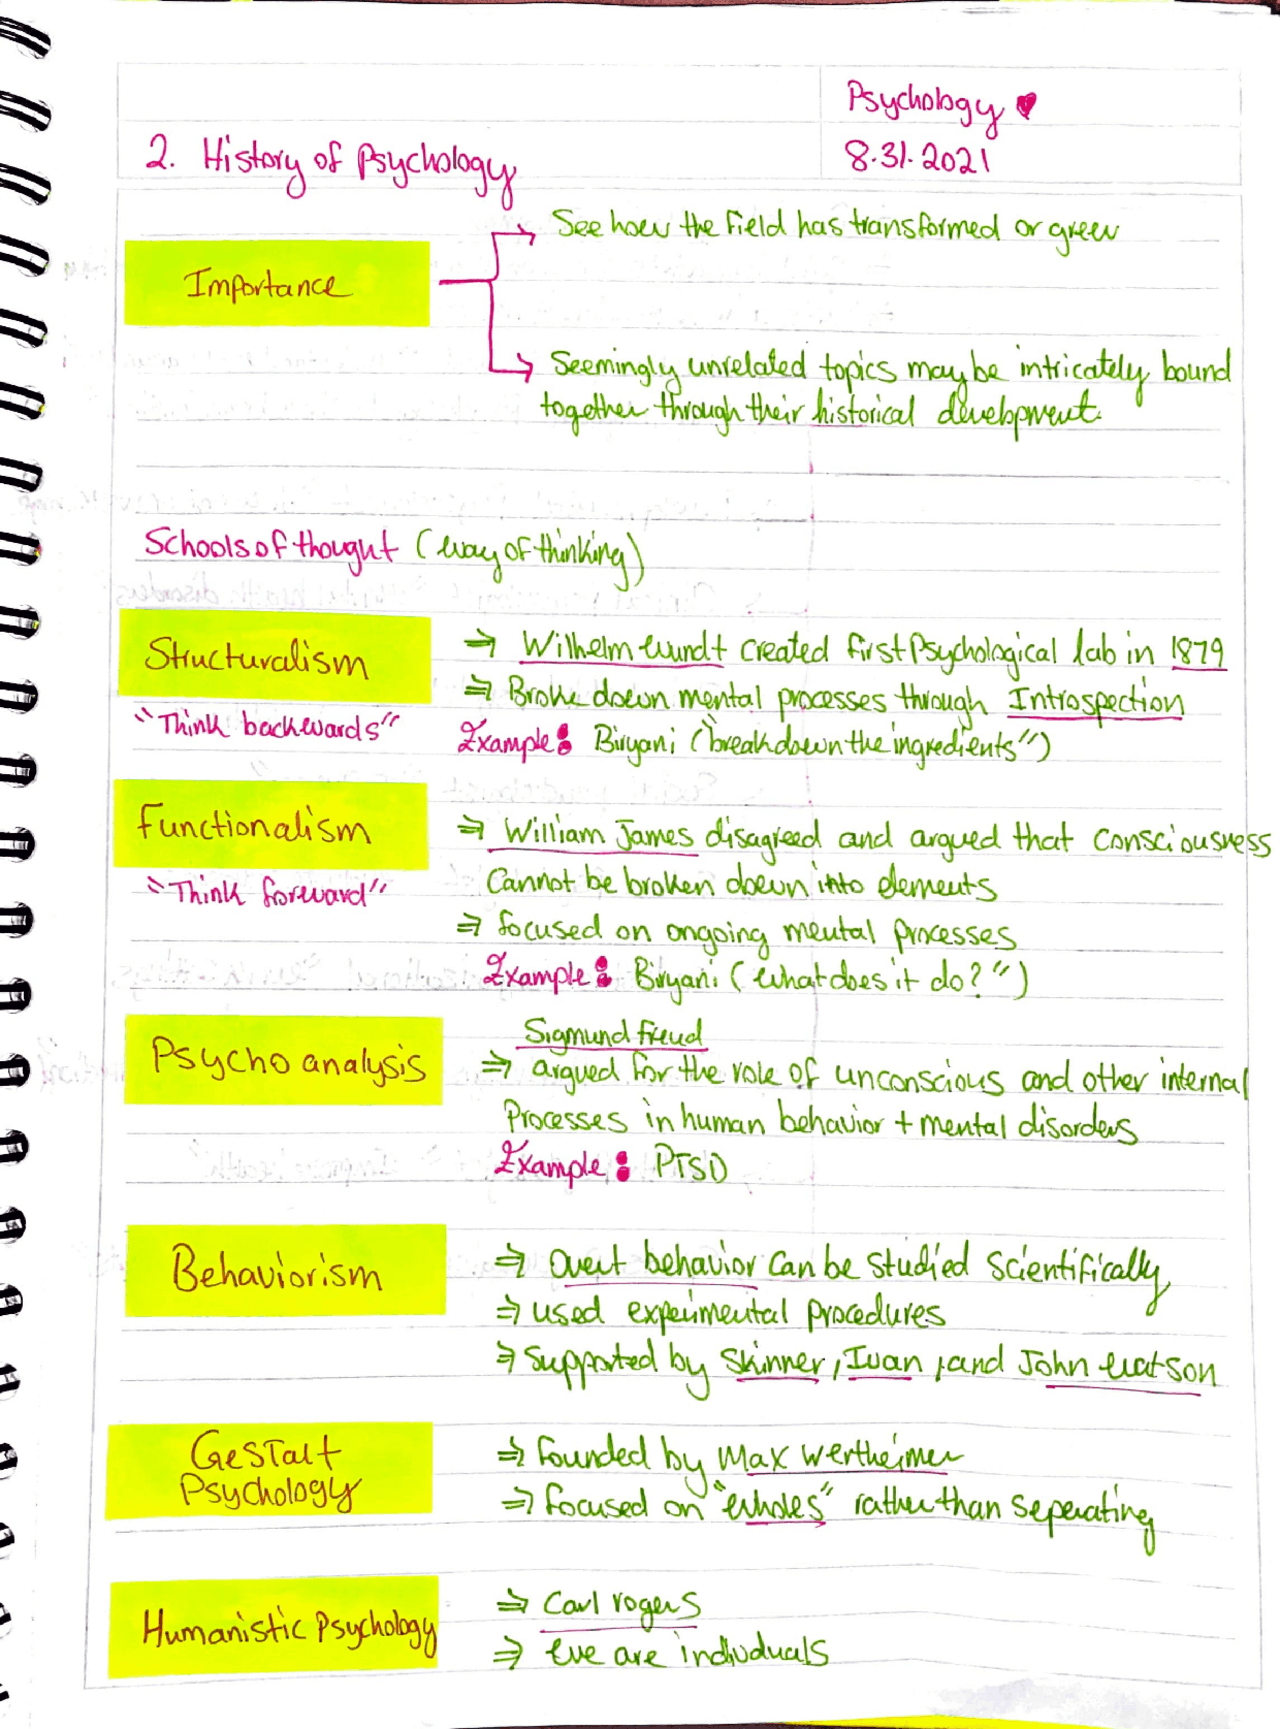 Psychology ♥
2. History of Psychology
8.31.2021
Importance
See how the field has transformed or grew
Seemingly unrelated topics may be intricately bound
together through their historical development.
Schools of thought (way of thinking)
Structuralism
"Think backwards"
⇒ Wilhelm wundt created first Psychological lab in 1879
⇒ Broke down mental processes through Introspection
Example: Biryani ("breakdown the ingredients")
Functionalism
"Think forward"
⇒ William James disagreed and argued that consciousness
Cannot be broken down into elements
⇒ focused on ongoing mental processes
Example: Biryani ("what does it do?")
Psycho analysis
Sigmund freud
⇒ argued for the role of unconscious and other internal
Processes in human behavior + mental disorders
Example: PTSD
Behaviorism
⇒ Overt behavior can be studied scientifically
⇒ used experimental procedures
⇒ Supported by Skinner, Ivan, and John watson
Gestalt
Psychology
⇒ founded by Max wertheimer
⇒ focused on "wholes" rather than seperating
Humanistic Psychology
⇒ Carl rogers
⇒ we are individuals